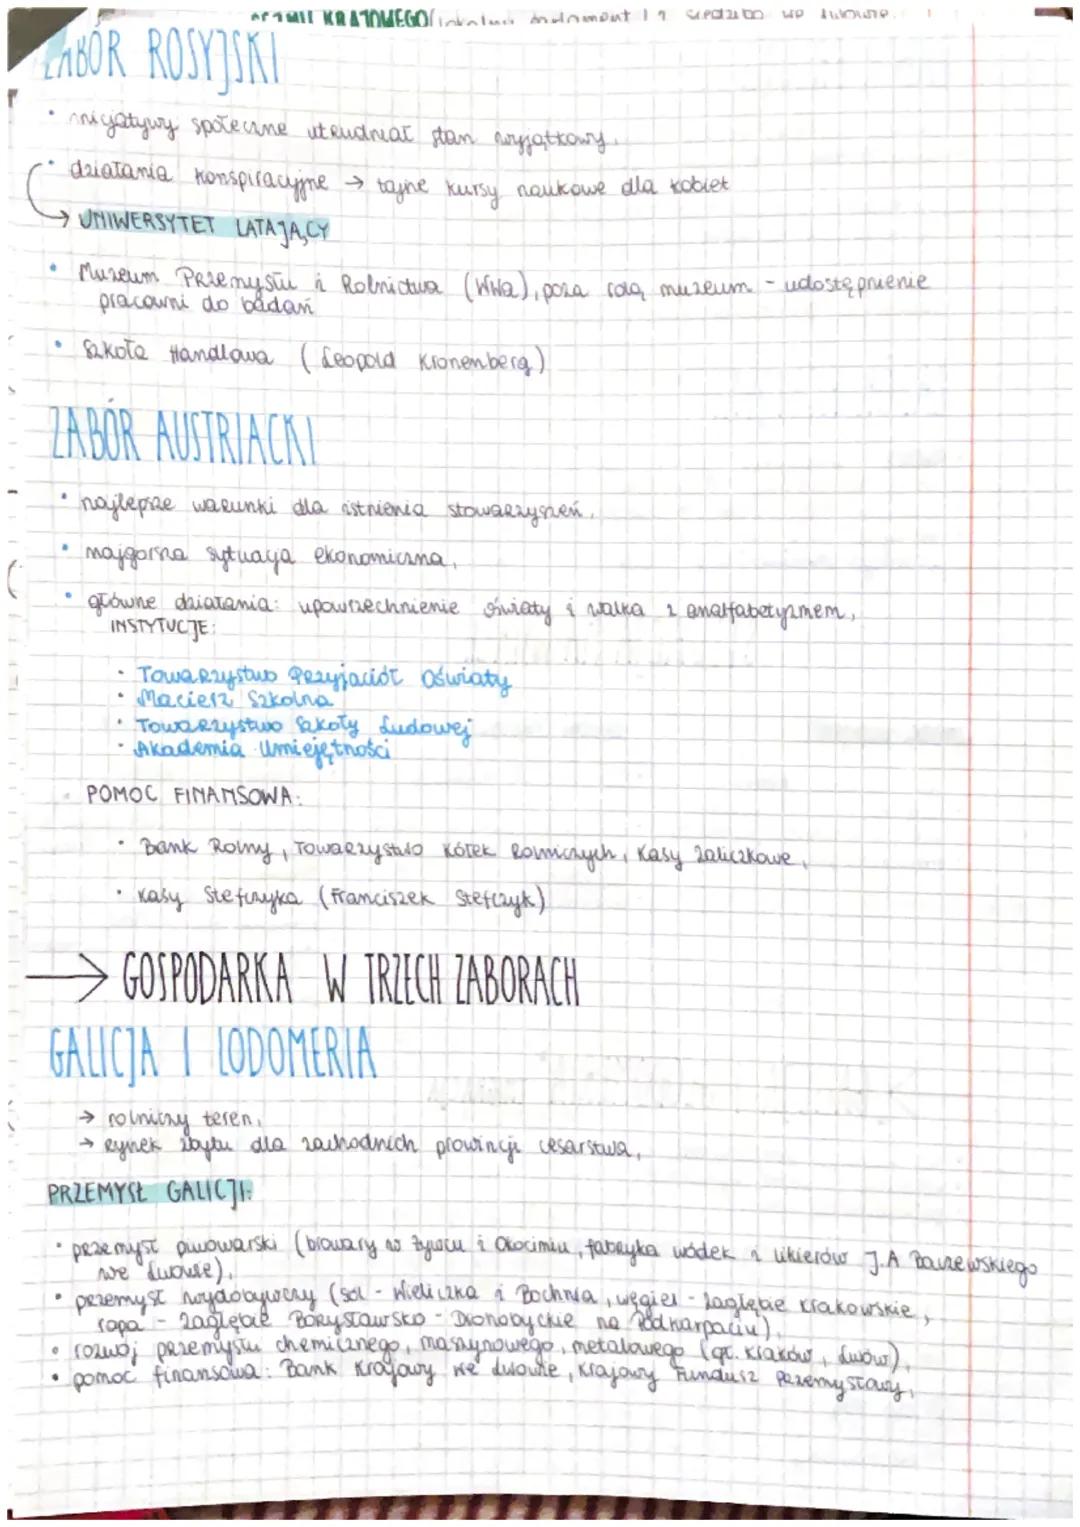 SEJMU KRAJOWEGO (lokalny parlament) z siedzibą we Lwowie.
ZABÓR ROSYJSKI
• inicjatywy społeczne utrudniał stan wyjątkowy.
• działania konspiracyjne → tajne kursy naukowe dla kobiet
→ UNIWERSYTET LATAJĄCY
• Muzeum Przemysłu i Rolnictwa (WWa), poza rolą muzeum - udostępnienie
pracowni do badań
• Szkoła Handlowa (Leopold Kronenberg)
ZABÓR AUSTRIACKI
• najlepsze warunki dla istnienia stowarzyszeń,
• najgorsza sytuacja ekonomiczna,
• główne działania: upowszechnienie oświaty i walka z analfabetyzmem,
INSTYTUCJE:
• Towarzystwo Przyjaciół Oświaty
• Macierz Szkolna
• Towarzystwo Szkoły Ludowej
• Akademia Umiejętności
POMOC FINANSOWA:
• Bank Rolny, Towarzystwo Kółek Rolniczych, Kasy Zaliczkowe,
• Kasy Stefczyka (Franciszek Stefczyk)
→ GOSPODARKA W TRZECH ZABORACH
GALICJA I LODOMERIA
→ rolniczy teren,
→ rynek zbytu dla zachodnich prowincji cesarstwa,
PRZEMYSŁ GALICJI:
• przemysł piwowarski (browary w Żywcu i Okocimiu, fabryka wódek i likierów J.A Baczewskiego
we Lwowie),
• przemysł wydobywczy (sól - Wieliczka i Bochnia, węgiel - Zagłębie Krakowskie,
ropa - Zagłębie Borysławsko - Drohobyckie na Podkarpaciu),
• rozwój przemysłu chemicznego, maszynowego, metalowego (gł. Kraków, Lwów),
• pomoc finansowa: Bank Krajowy we Lwowie, Krajowy Fundusz Przemysłowy,